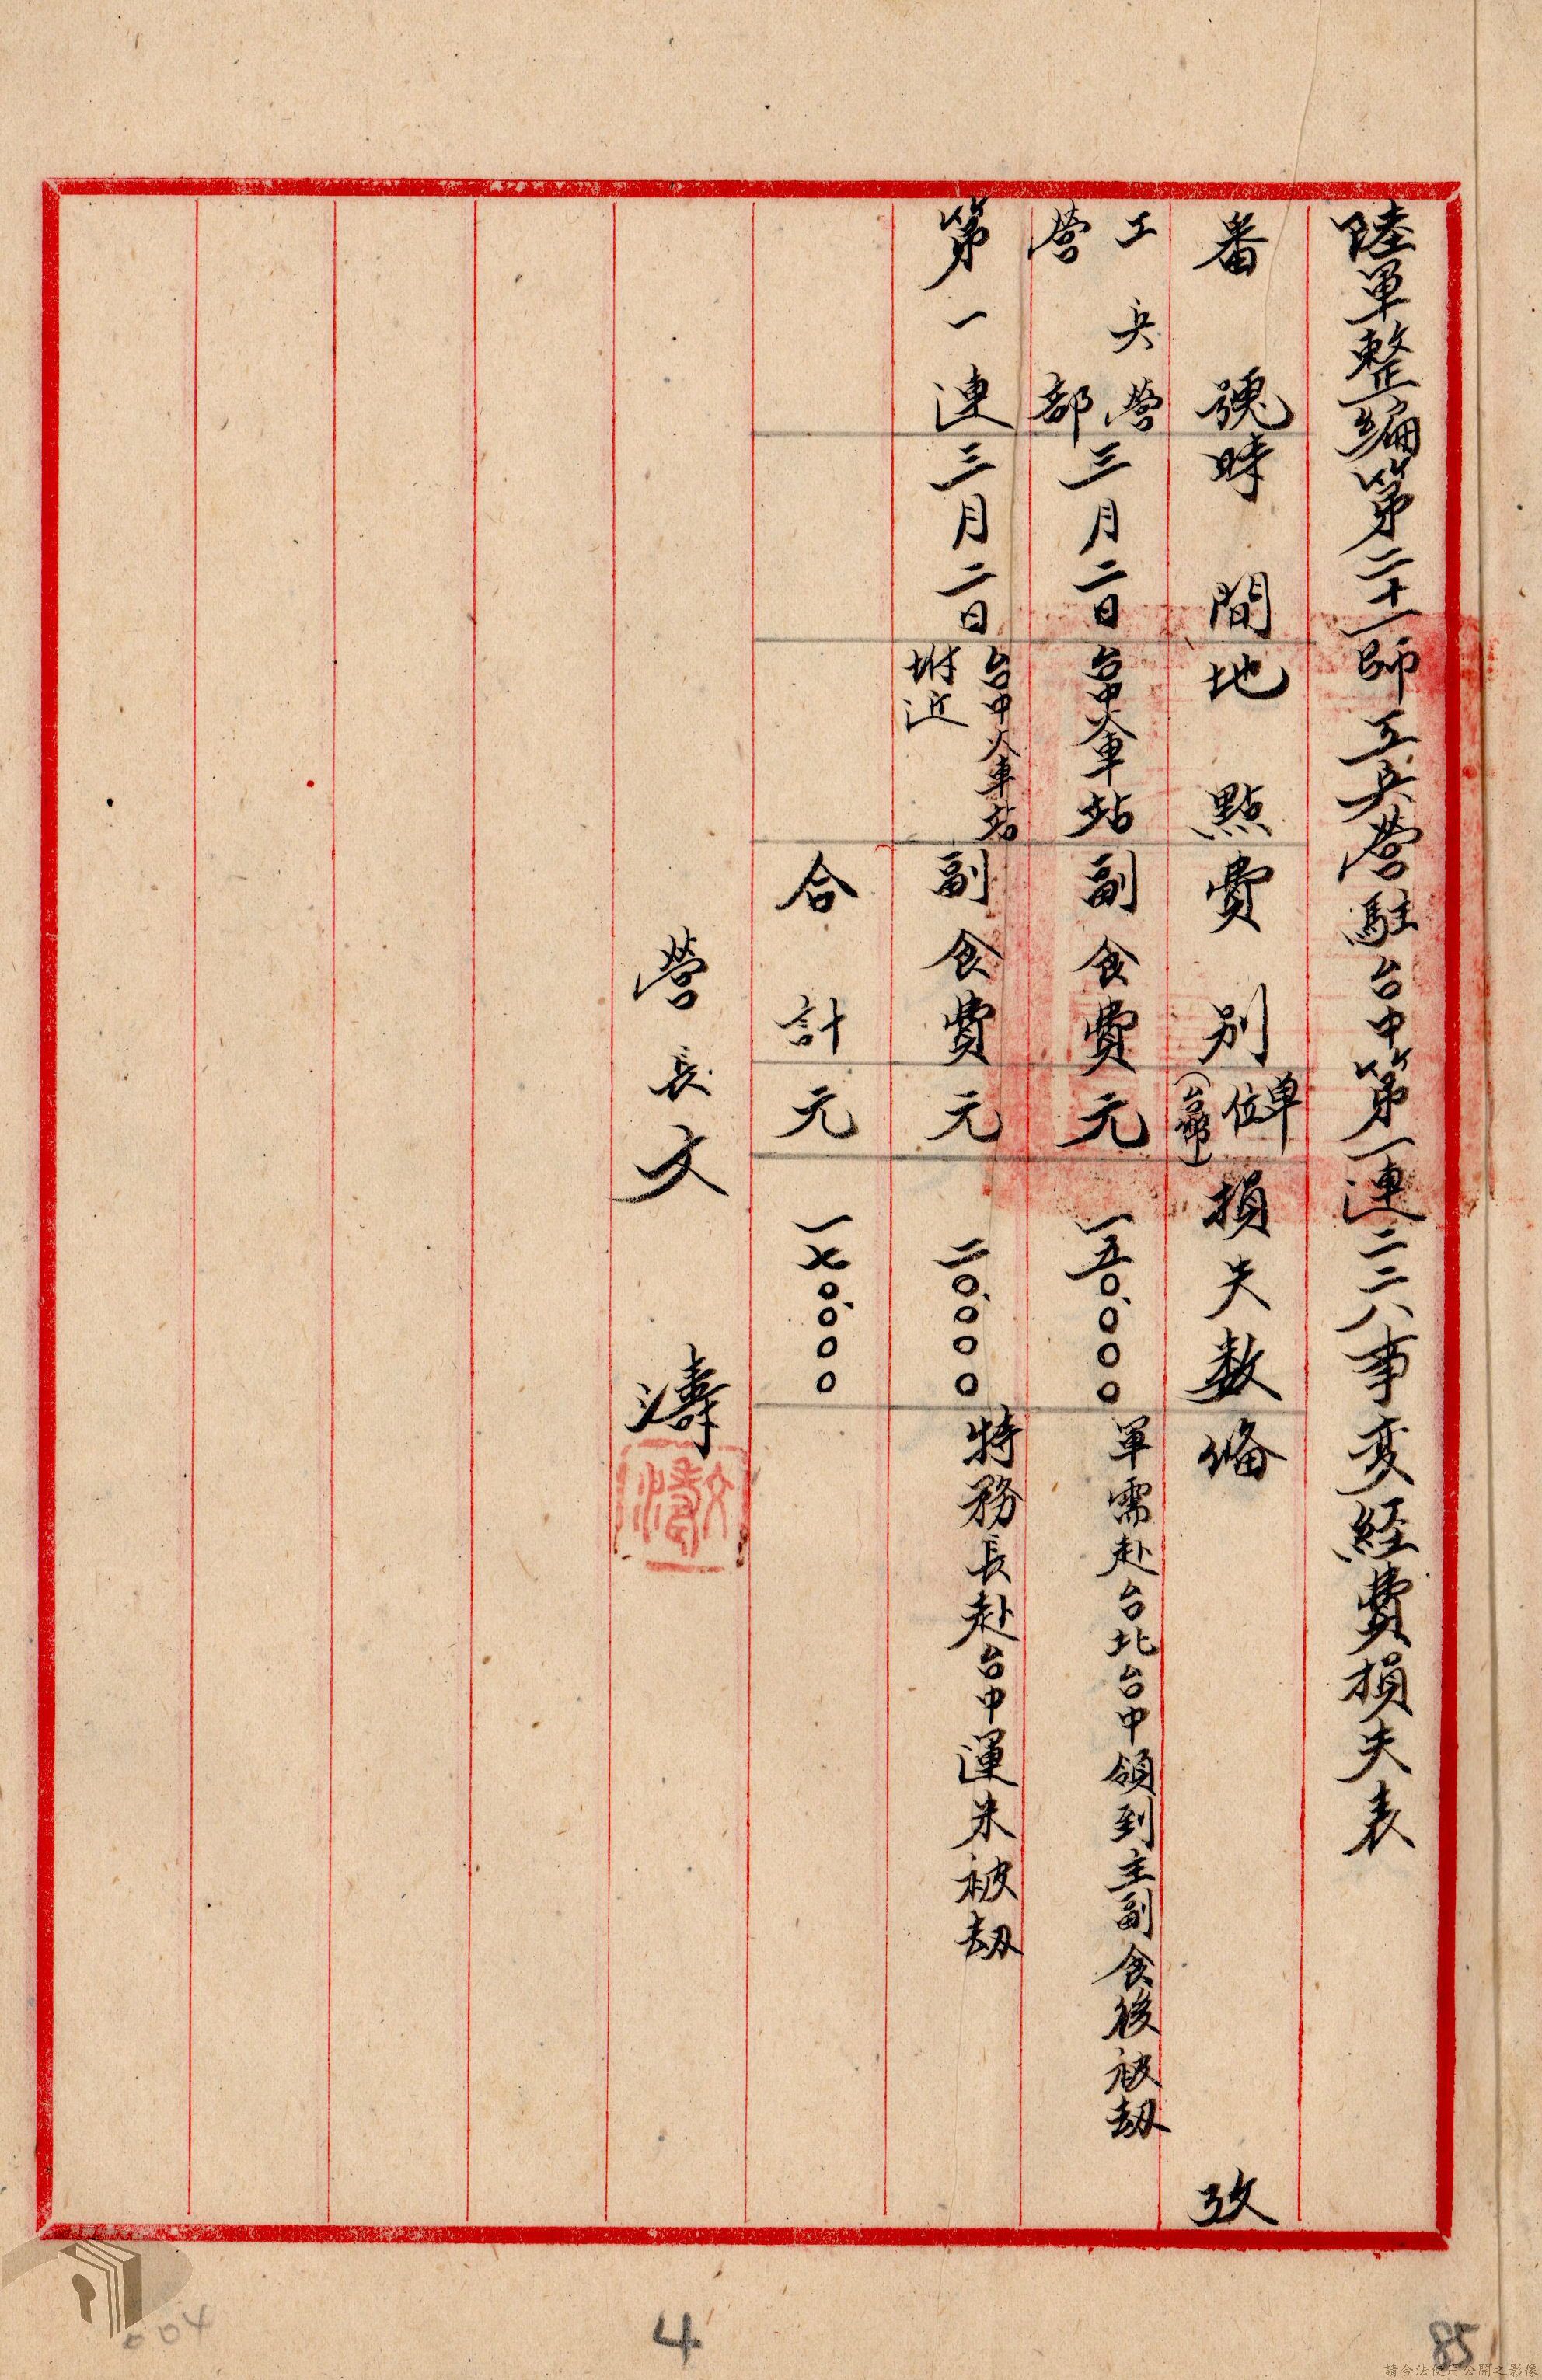 陸軍整編第二十一師工兵營駐台中第一連二二八事変経費損失表
番號 時間 地點 費別 単位(台幣) 損失数 俻攷
工兵營營部 三月二日 台中火車站 副食費 元 一五〇、〇〇〇 軍需赴台北台中領到主副食後被劫
第一連 三月二日 台中火車站坿近 副食費 元 二〇、〇〇〇 特務長赴台中運米被劫
合計 元 一七〇、〇〇〇
營長文 濤
文濤
004
4
85
請合法使用公開之影像